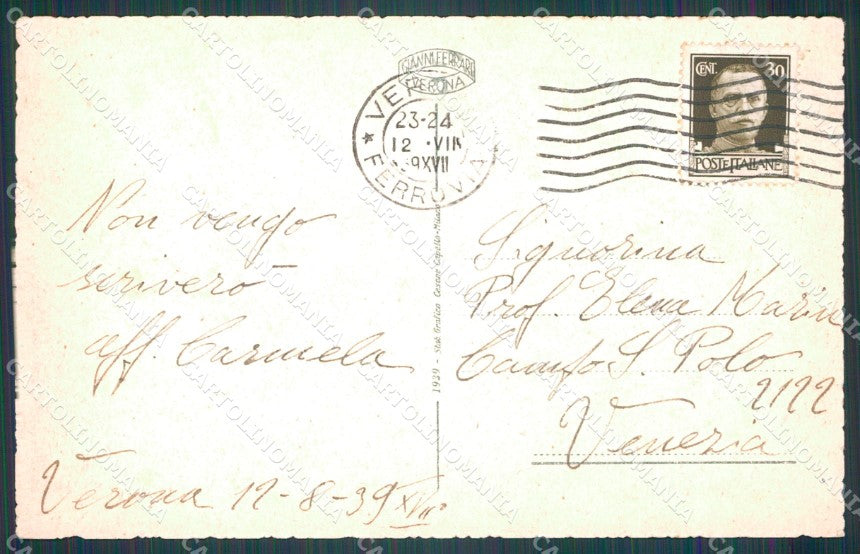 GIANNI FERRARI
VERONA
23-24
12 · VIII
9XVII
FERROVIA
CENT. 30
POSTE ITALIANE
Non vengo
scriverò
aff. Carmela
Verona 12-8-39 XVII°
1939 - Stab. Grafico Cesare Capello - Milano
Signorina
Prof. Elena Marin
Campo S. Polo
2122
Venezia
CARTOLINOMANIA